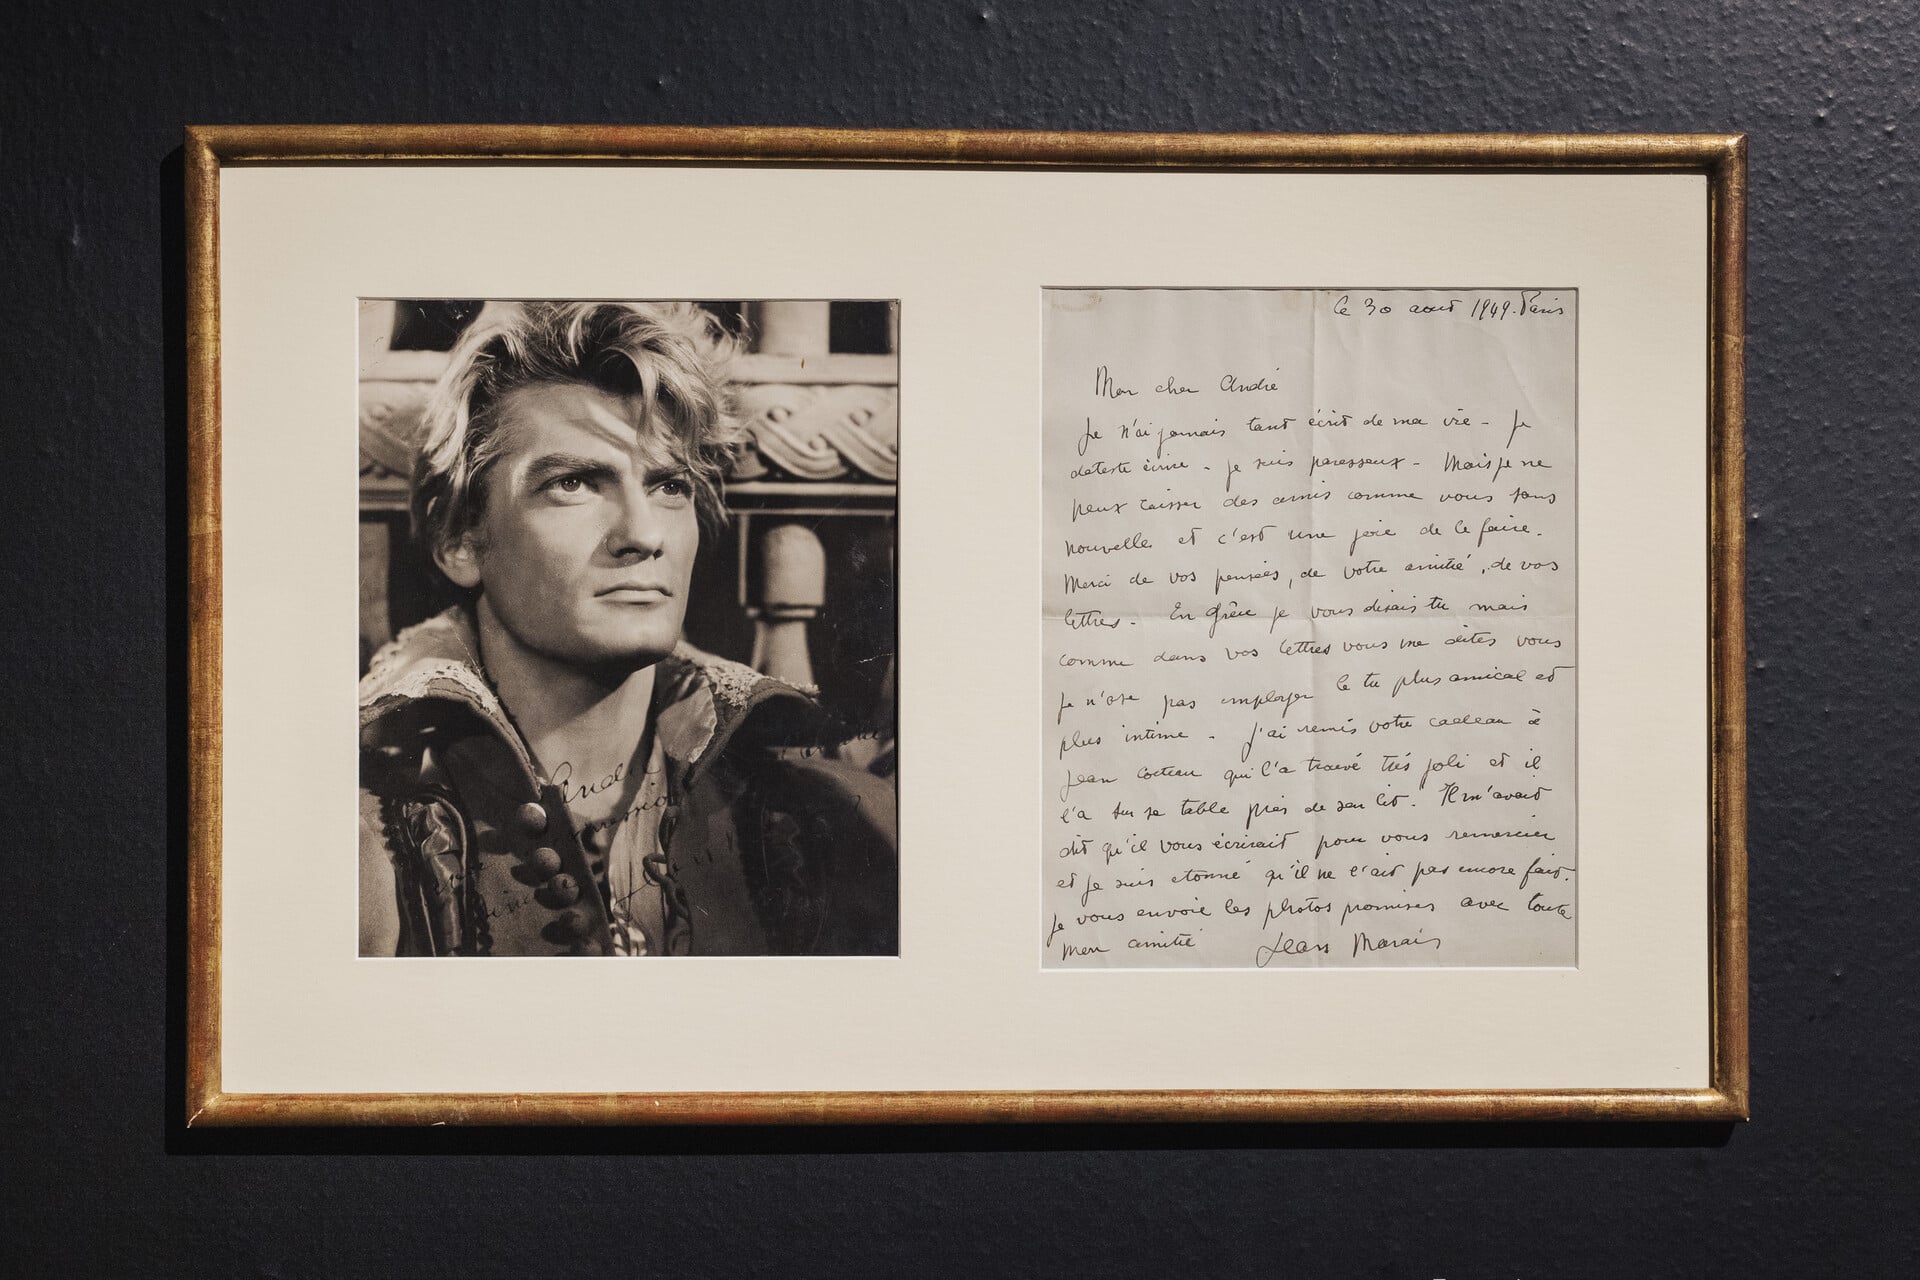 André
le 30 aout 1949. Paris
Mon cher André
Je n'ai jamais tant écrit de ma vie - Je
deteste écrire - je suis paresseux - Mais je ne
peux laisser des amis comme vous sans
nouvelles et c'est une joie de le faire.
Merci de vos pensées, de votre amitié, de vos
lettres. En Grèce je vous disais tu mais
comme dans vos lettres vous me dites vous
je n'ose pas employer le tu plus amical et
plus intime - J'ai remis votre cadeau à
Jean Cocteau qui l'a trouvé très joli et il
l'a sur sa table près de son lit. Il m'avait
dit qu'il vous écrirait pour vous remercier
et je suis etonné qu'il ne l'ait pas encore fait.
Je vous envoie les photos promises avec toute
mon amitié Jean Marais